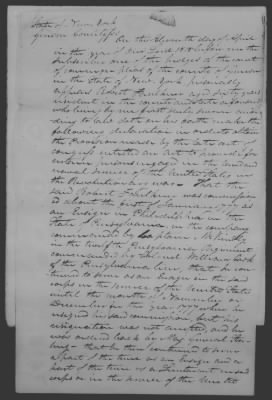 State of New York
County ss
On the Eleventh day of April
in the year of our Lord 1818 before me the
Subscriber one of the Judges of the court
of common pleas of the county of
in the State of New York personally
appears Robert aged sixty years
resident in the county and state aforesaid
who being by me first duly sworn accor-
ding to law doth on his oath make the
following declaration in order to obtain
the provision made by the late act of
congress entitled an act to provide for
certain persons engaged in the land and
naval service of the United States in
the Revolutionary war. That the
said Robert was commission-
ed about the first of January as
an Ensign in Philadelphia in the
State of Pennsylvania in the company
commanded by
in the twelfth Pennsylvania Regiment
commanded by Colonel William Cook
of the Pennsylvania line, that he con-
tinued to serve as an Ensign in the said
corps in the service of the United States
until the month of November or
December in the year 1777 when he
resigned his said commission, but his
resignation was not accepted, and he
was ordered back by the general
that he then continued to serve
a part of the time as an Ensign and a
part of the time as a Lieutenant in said
corps or in the service of the United